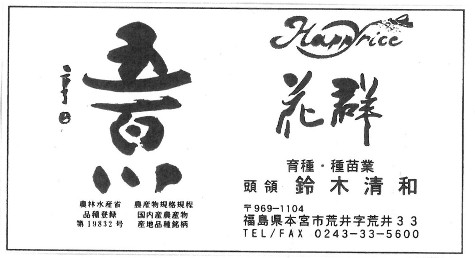 五百川
農林水産省
品種登録
第19832号
農産物規格規程
国内産農産物
産地品種銘柄
Happrice
花群
育種・種苗業
頭領 鈴木清和
〒969-1104
福島県本宮市荒井字荒井33
TEL/FAX 0243-33-5600